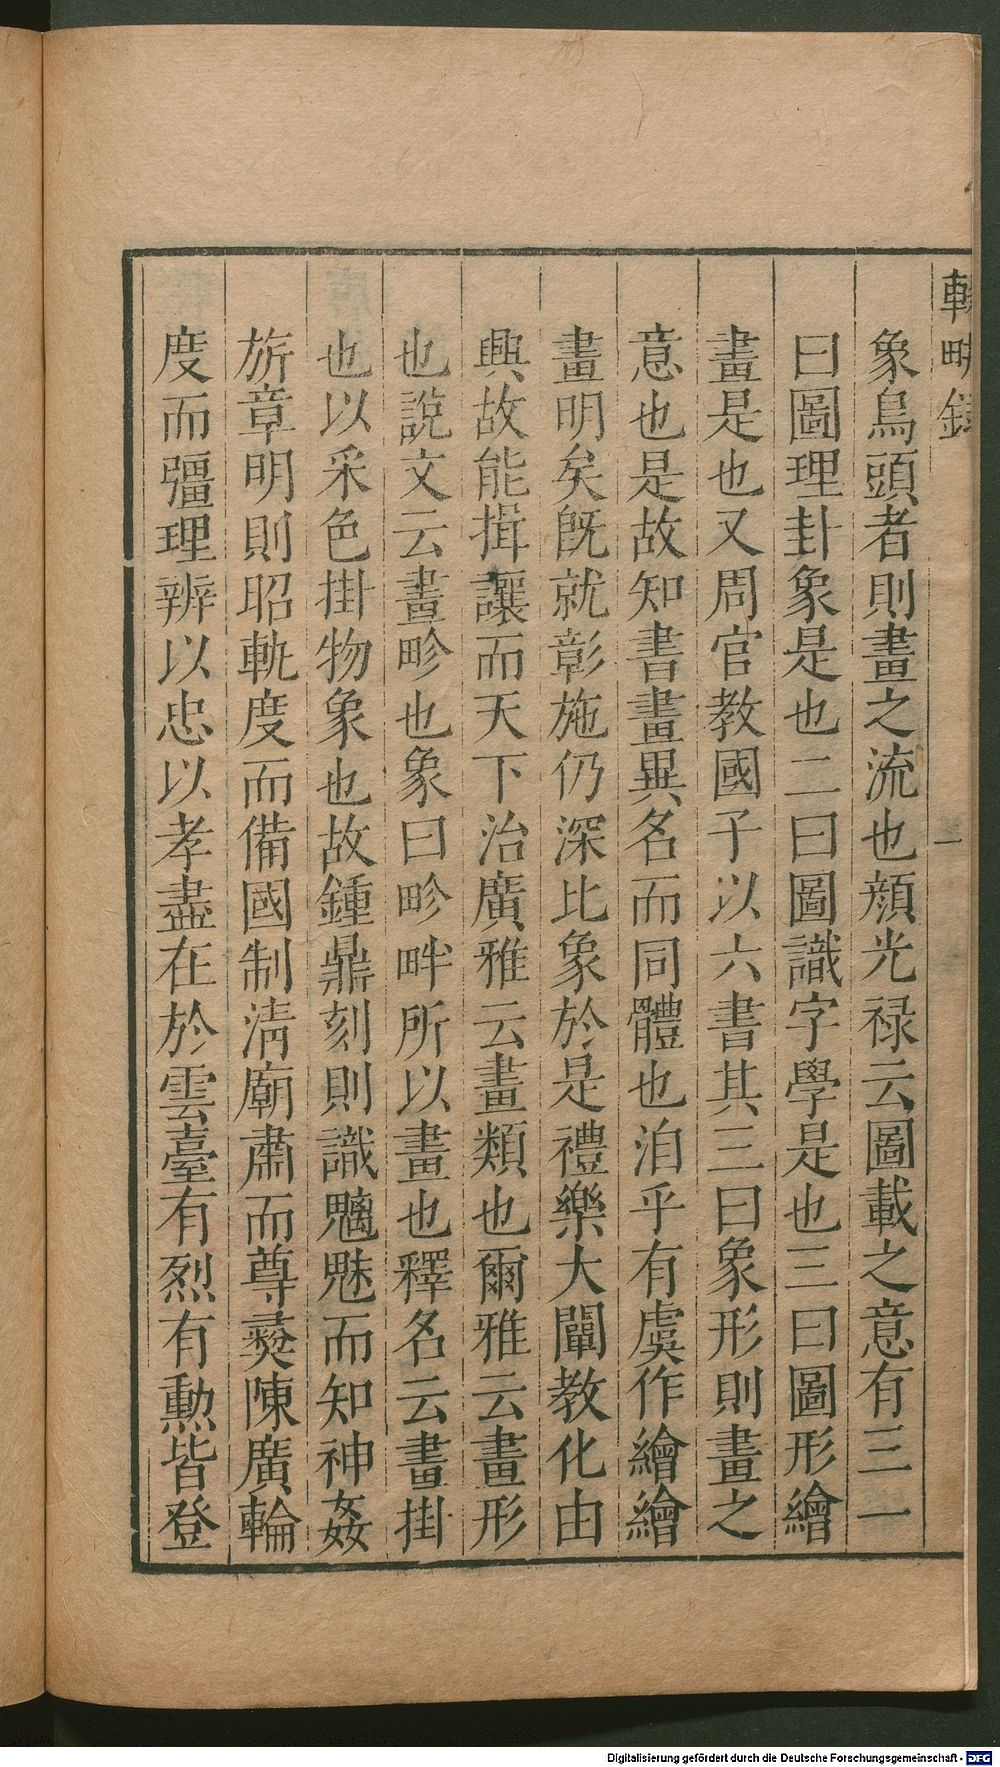 輟畊錄
一
象鳥頭者則畫之流也顔光禄云圖載之意有三一
曰圖理卦象是也二曰圖識字學是也三曰圖形繪
畫是也又周官教國子以六書其三曰象形則畫之
意也是故知書畫異名而同體也洎乎有虞作繪繪
畫明矣旣就彰施仍深比象於是禮樂大闡教化由
興故能揖讓而天下治廣雅云畫類也爾雅云畫形
也說文云畫畛也象曰畛畔所以畫也釋名云畫掛
也以采色掛物象也故鍾鼎刻則識魑魅而知神姦
旂章明則昭軌度而備國制淸廟肅而尊彛陳廣輪
度而彊理辨以忠以孝盡在於雲臺有烈有勲皆登
Digitalisierung gefördert durch die Deutsche Forschungsgemeinschaft - DFG